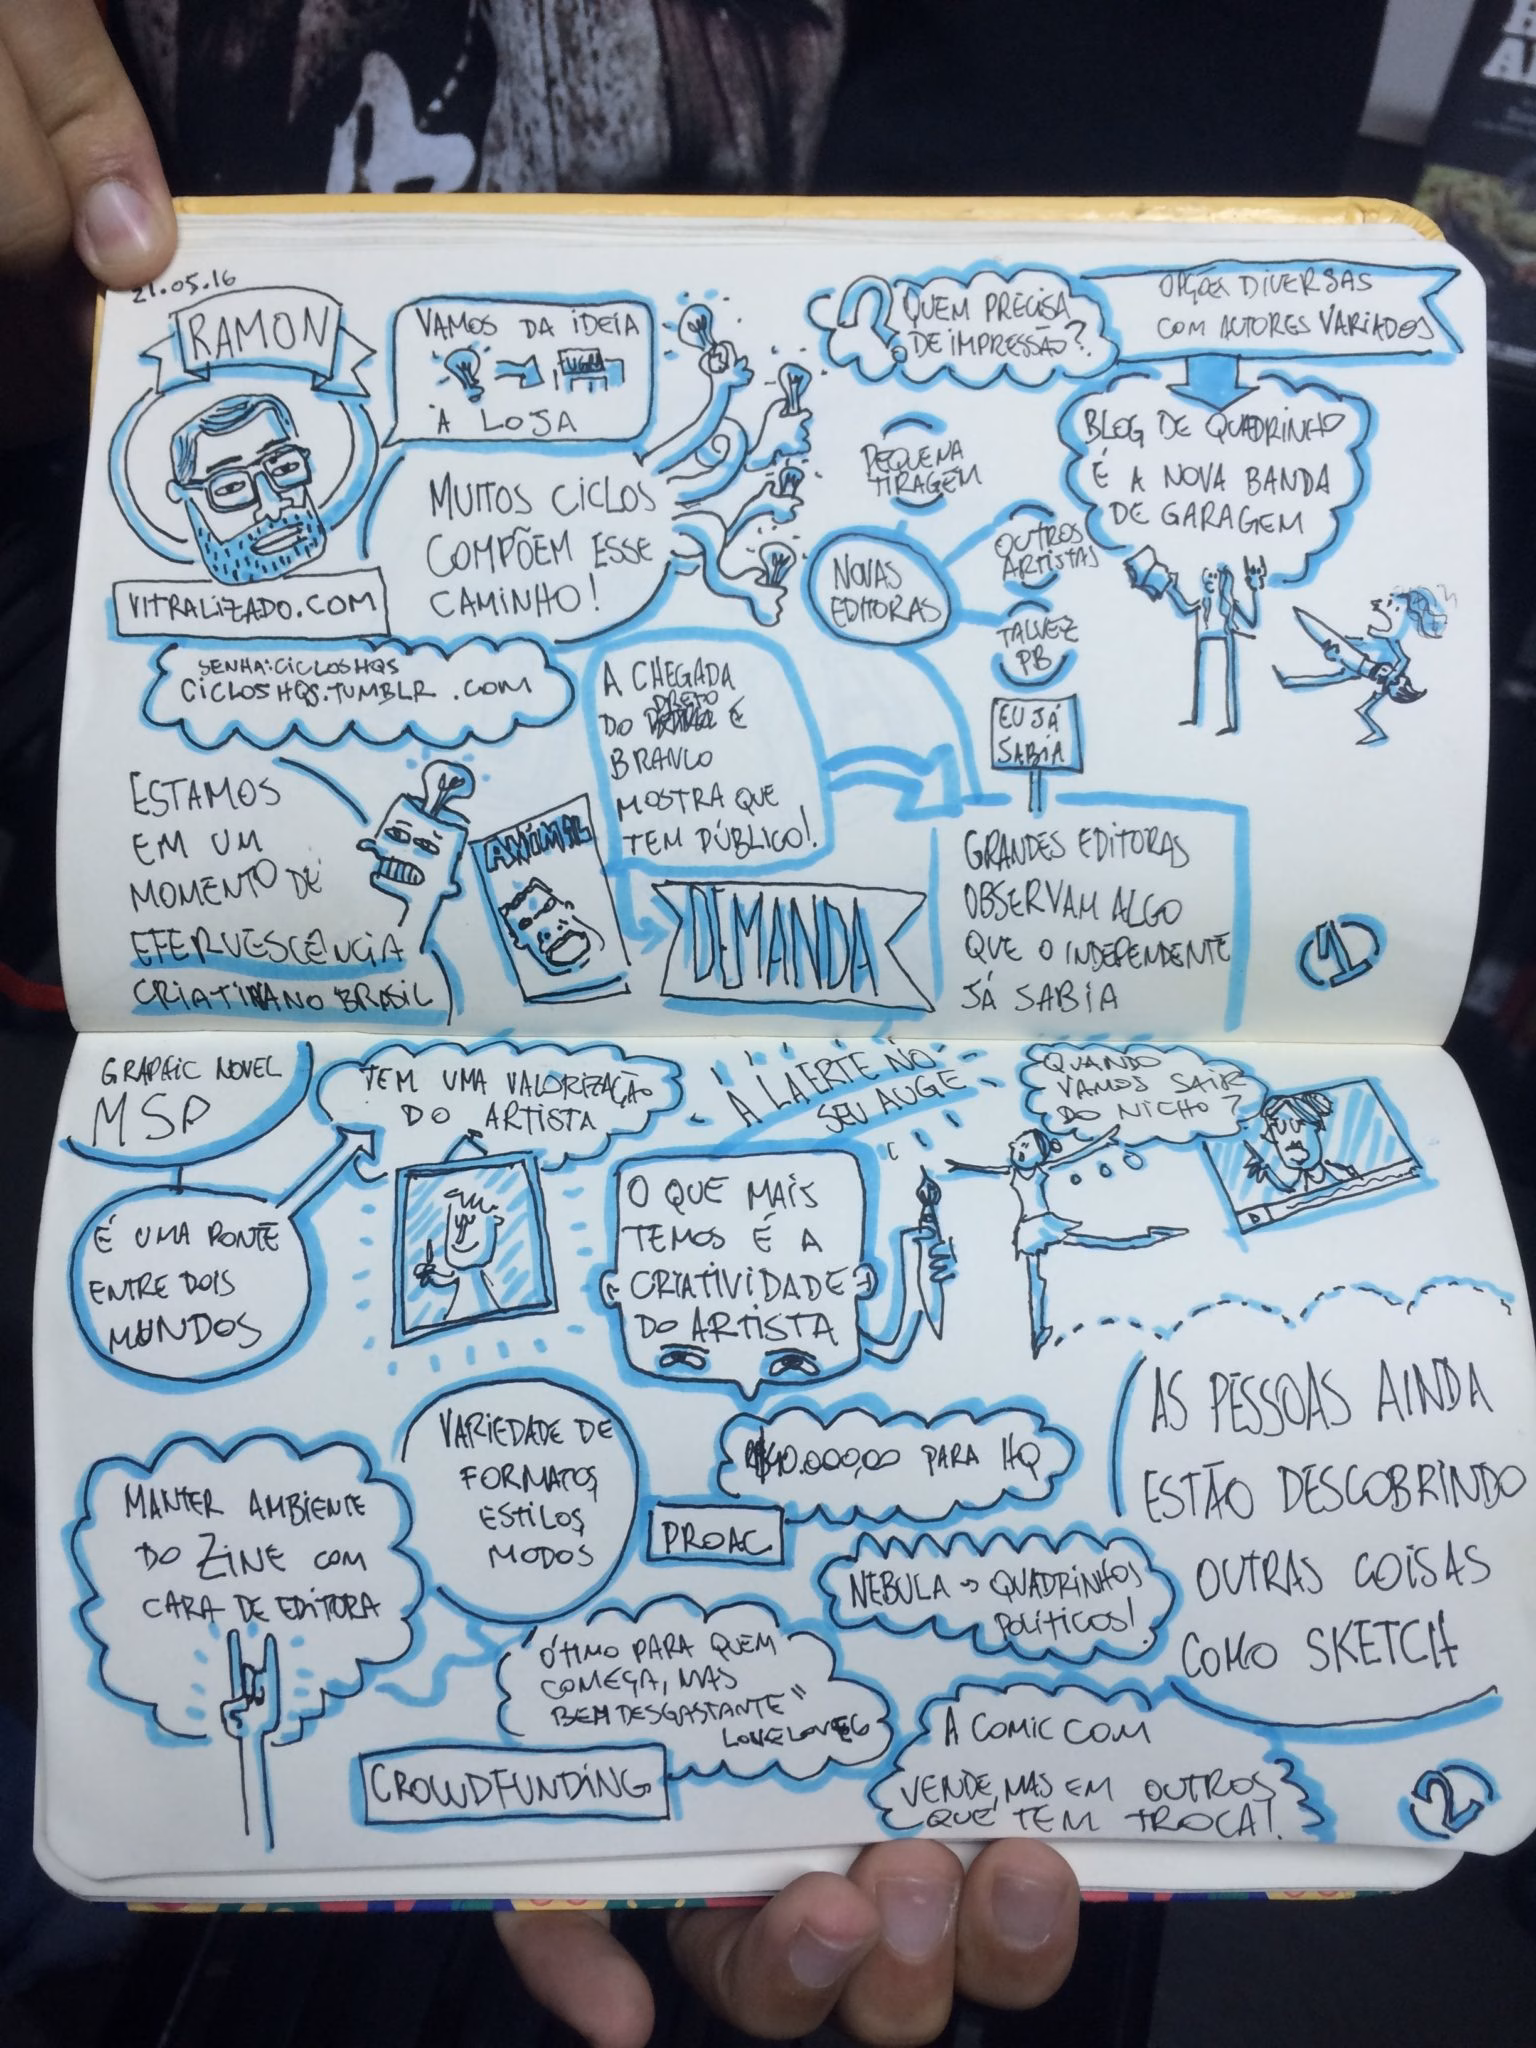 21.05.16
RAMON
VITRALIZADO.COM
VAMOS DA IDEIA
UGRA
À LOJA
MUITOS CICLOS
COMPÕEM ESSE
CAMINHO!
SENHA: CICLOSHQS
CICLOSHQS.TUMBLR.COM
ESTAMOS
EM UM
MOMENTO DE
EFERVESCÊNCIA
CRIATIVA NO BRASIL
ANIMAL
A CHEGADA
DO PRETO E
BRANCO
MOSTRA QUE
TEM PÚBLICO!
DEMANDA
QUEM PRECISA
DE IMPRESSÃO?
?
OPÇÕES DIVERSAS
COM AUTORES VARIADOS
BLOG DE QUADRINHO
É A NOVA BANDA
DE GARAGEM
PEQUENA
TIRAGEM
NOVAS
EDITORAS
OUTROS
ARTISTAS
TALVEZ
PB
EU JÁ
SABIA
GRANDES EDITORAS
OBSERVAM ALGO
QUE O INDEPENDENTE
JÁ SABIA
1
GRAPHIC NOVEL
MSP
É UMA PONTE
ENTRE DOIS
MUNDOS
TEM UMA VALORIZAÇÃO
DO ARTISTA
A LAERTE NO
SEU AUGE
O QUE MAIS
TEMOS É A
CRIATIVIDADE
DO ARTISTA
QUANDO
VAMOS SAIR
DO NICHO?
AS PESSOAS AINDA
ESTÃO DESCOBRINDO
OUTRAS COISAS
COMO SKETCH
MANTER AMBIENTE
DO ZINE COM
CARA DE EDITORA
VARIEDADE DE
FORMATOS,
ESTILOS,
MODOS
R$40.000,00 PARA HQ
PROAC
NEBULA → QUADRINHOS
POLÍTICOS!
"ÓTIMO PARA QUEM
COMEÇA, MAS
BEM DESGASTANTE"
LOVELOVE6
CROWDFUNDING
A COMIC COM
VENDE, MAS EM OUTROS
QUE TEM TROCA!
2